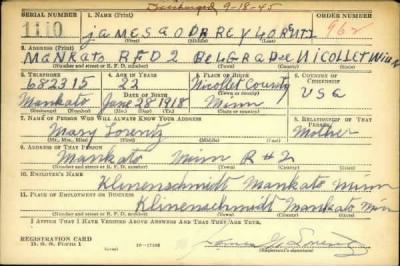 Discharged 9-18-45
SERIAL NUMBER 1. NAME (Print) ORDER NUMBER
1110 James Audrey Lorentz 962
(First) (Middle) (Last)
2. ADDRESS (Print)
Mankato RFD 2 Belgrade Nicollet Minn
(Number and street or R. F. D. number) (Town) (County) (State)
3. TELEPHONE 4. AGE IN YEARS 5. PLACE OF BIRTH 6. COUNTRY OF CITIZENSHIP
682315 22 Nicollet County USA
DATE OF BIRTH (Town or county)
Mankato June 28 1918 Minn
(Exchange) (Mo.) (Day) (Yr.) (State or country)
7. NAME OF PERSON WHO WILL ALWAYS KNOW YOUR ADDRESS 8. RELATIONSHIP OF THAT PERSON
Mary Lorentz Mother
(Mr., Mrs., Miss) (First) (Middle) (Last)
9. ADDRESS OF THAT PERSON
Mankato Minn R #2
(Number and street or R. F. D. number) (Town) (County) (State)
10. EMPLOYER'S NAME
Klinenschmidt Mankato Minn
11. PLACE OF EMPLOYMENT OR BUSINESS
Klinenschmidt Mankato Min
(Number and street or R. F. D. number) (Town) (County) (State)
I AFFIRM THAT I HAVE VERIFIED ABOVE ANSWERS AND THAT THEY ARE TRUE.
REGISTRATION CARD
D. S. S. Form 1 James A Lorentz
(Registrant's signature)